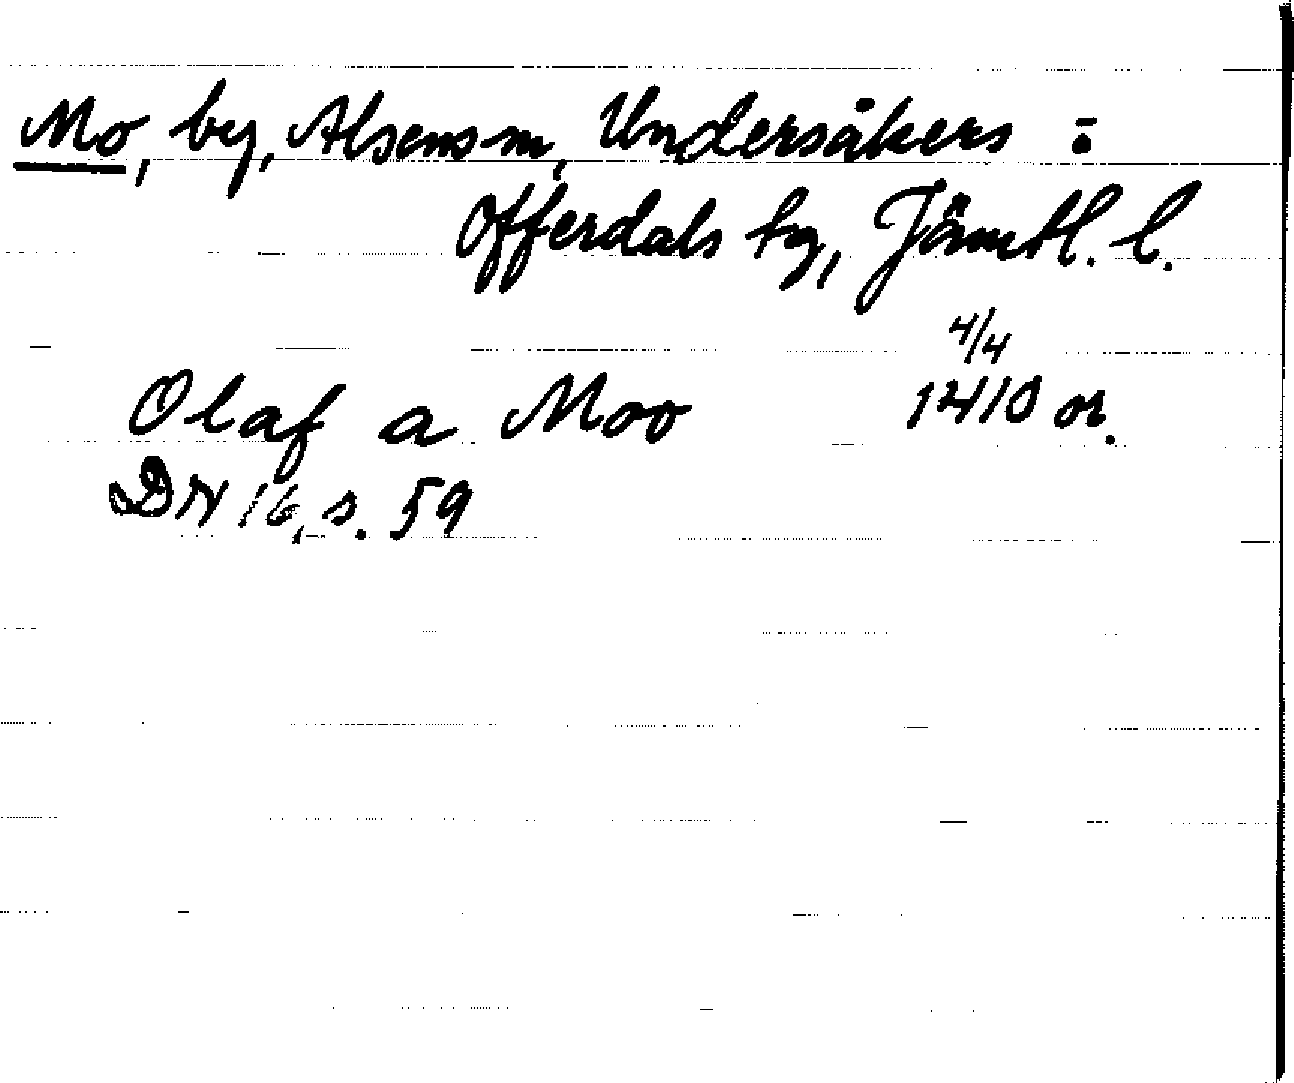 Mo, by, Alsens sn, Undersåkers =
Offerdals tg, Jämtl. l.
4/4
Olaf a Moo 1410 or.
DN 16, s. 59